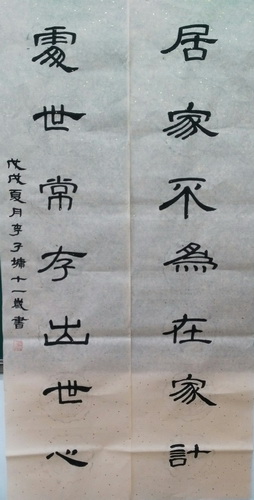 居家不為在家計
處世常存出世心
戊戌夏月李子㯋十一歲書